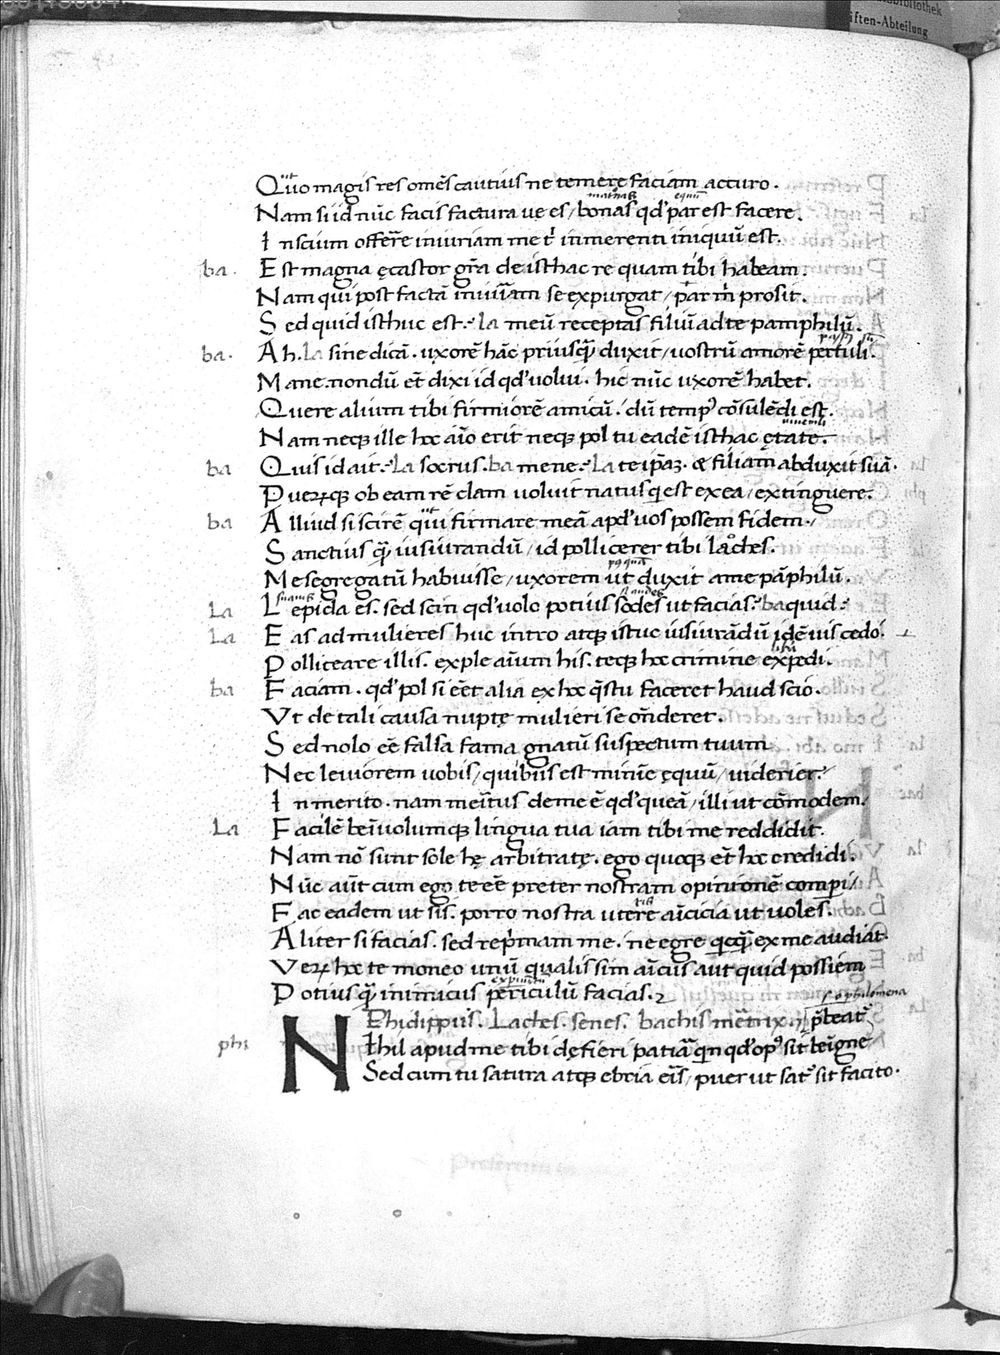 Quo magis res om̄es cautius ne temere faciam accuro.
Nam si id nūc facis factura ue es / bonas qd' par est facere.
Inscium offerr̄e iniuriam me t̄ inmerenti iniquū est.
ba. Est magna ęcastor gr̄a de isthac re quam tibi habeam.
Nam qui post factā iniuriam se expurgat / par m̄ prosit.
Sed quid isthuc est. la meū receptas filiū ad te pamphilū.
ba. Ah. la sine dicā. uxorē hāc priusq̄ duxit / uostrū amorē pertuli.
Mane. nondū et̄ dixi id qd' uolui. hic nūc uxorē habet.
Quere alium tibi firmiorē amicū. dū temp' cōsulēdi est.
Nam neq; ille hoc aīo erit neq; pol tu eadē isthac ętate.
ba Quis id ait. la socrus. ba mene. la te ip̄aꝫ. & filiam abduxit suā.
Puerꝝq; ob eam rē clam uoluit natus q est ex ea / extinguere.
ba Alliud si scirē qui firmare meā apd' uos possem fidem.
Sanctius q̄ iusiurandū / id pollicerer tibi laches.
Me segregatū habuisse / uxorem ut duxit a me pāphilū.
La Lepida es. sed scin qd' uolo potius sodes ut facias. ba quid.
La Eas ad mulieres huc intro atq; istuc iusiurādū idē uis cedo.
Polliceare illis. exple aīum his. teq; hoc crimine expedi.
ba Faciam. qd' pol si eēt alia ex hoc q̄stu faceret haud scio.
Vt de tali causa nuptę mulieri se oñderet.
Sed nolo eē falsa fama gnatū suspectum tuum
Nec leuiorem uobis / quibus est minīe ęquū / uiderier.
In merito. nam meritus de me ē qd' queā / illi ut cōmodem.
La Facilē beniuolumq; lingua tua iam tibi me reddidit.
Nam nō sunt sole hę arbitratę. ego quoq; et̄ hoc credidi.
Nūc aūt cum ego te eē preter nostram opinionē comperi /
Fac eadem ut sis. porro nostra utere aīcicia ut uoles.
Aliter si facias. sed repr̄mam me. ne egre quicq̄ ex me audiat.
Verꝝ hoc te moneo unū qualis sim aīcus aut quid possiem
Potius q̄ inimicus periculū facias.
Phidippus. Laches. senes. bachis mer̄trix.
phi Nihil apud me tibi dęfieri patiar quin qd' op' sit benigne
Sed cum tu satura atq; ebria eris / puer ut sat' sit facito.